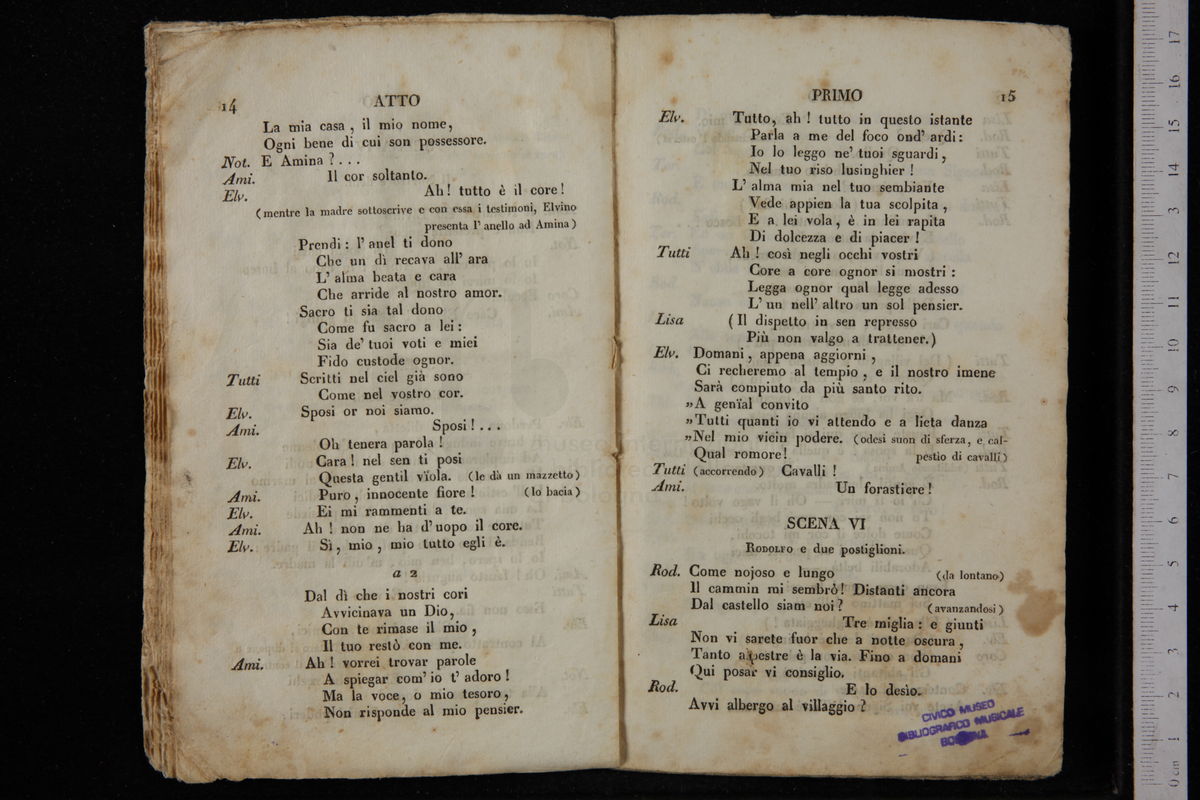 14
ATTO
La mia casa , il mio nome,
Ogni bene di cui son possessore.
Not. E Amina ? . . .
Ami. Il cor soltanto.
Elv. Ah ! tutto è il core !
( mentre la madre sottoscrive e con essa i testimoni, Elvino
presenta l' anello ad Amina )
Prendi : l' anel ti dono
Che un dì recava all' ara
L' alma beata e cara
Che arride al nostro amor.
Sacro ti sia tal dono
Come fu sacro a lei :
Sia de' tuoi voti e miei
Fido custode ognor.
Tutti Scritti nel ciel già sono
Come nel vostro cor.
Elv. Sposi or noi siamo.
Ami. Sposi ! . . .
Oh tenera parola !
Elv. Cara ! nel sen ti posi
Questa gentil vïola. (le dà un mazzetto)
Ami. Puro , innocente fiore ! (lo bacia)
Elv. Ei mi rammenti a te.
Ami. Ah ! non ne ha d' uopo il core.
Elv. Sì , mio , mio tutto egli è.
a 2
Dal dì che i nostri cori
Avvicinava un Dio,
Con te rimase il mio ,
Il tuo restò con me.
Ami. Ah ! vorrei trovar parole
A spiegar com' io t' adoro !
Ma la voce, o mio tesoro,
Non risponde al mio pensier.
PRIMO
15
Elv. Tutto, ah ! tutto in questo istante
Parla a me del foco ond' ardi :
Io lo leggo ne' tuoi sguardi ,
Nel tuo riso lusinghier !
L' alma mia nel tuo sembiante
Vede appien la tua scolpita ,
E a lei vola , è in lei rapita
Di dolcezza e di piacer !
Tutti Ah ! così negli occhi vostri
Core a core ognor si mostri :
Legga ognor qual legge adesso
L' un nell' altro un sol pensier.
Lisa ( Il dispetto in sen represso
Più non valgo a trattener.)
Elv. Domani , appena aggiorni ,
Ci recheremo al tempio , e il nostro imene
Sarà compiuto da più santo rito.
»A genïal convito
»Tutti quanti io vi attendo e a lieta danza
»Nel mio vicin podere. (odesi suon di sferza, e cal-
Qual romore! pestìo di cavalli)
Tutti (accorrendo) Cavalli !
Ami. Un forastiere !
SCENA VI
RODOLFO e due postiglioni.
Rod. Come nojoso e lungo (da lontano)
Il cammin mi sembrò! Distanti ancora
Dal castello siam noi? (avanzandosi)
Lisa Tre miglia : e giunti
Non vi sarete fuor che a notte oscura ,
Tanto alpestre è la via. Fino a domani
Qui posar vi consiglio.
Rod. E lo desìo.
Avvi albergo al villaggio ?
CIVICO MUSEO
BIBLIOGRAFICO MUSICALE
BOLOGNA